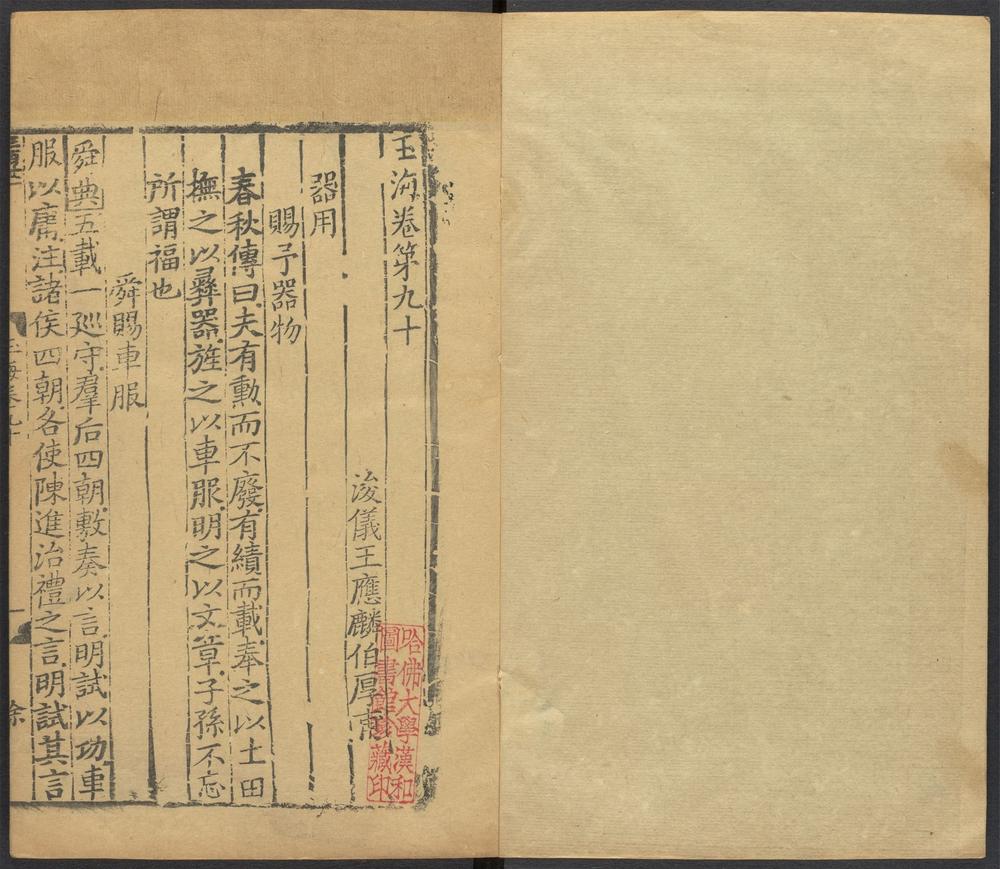 玉海卷第九十
浚儀王應麟伯厚甫
器用
賜予器物
春秋傳曰夫有勳而不廢有績而載奉之以土田
撫之以彝器旌之以車服明之以文章子孫不忘
所謂福也
舜賜車服
舜典五載一巡守羣后四朝敷奏以言明試以功車
服以庸注諸侯四朝各使陳進治禮之言明試其言
哈佛大學漢和
圖書館珍藏印